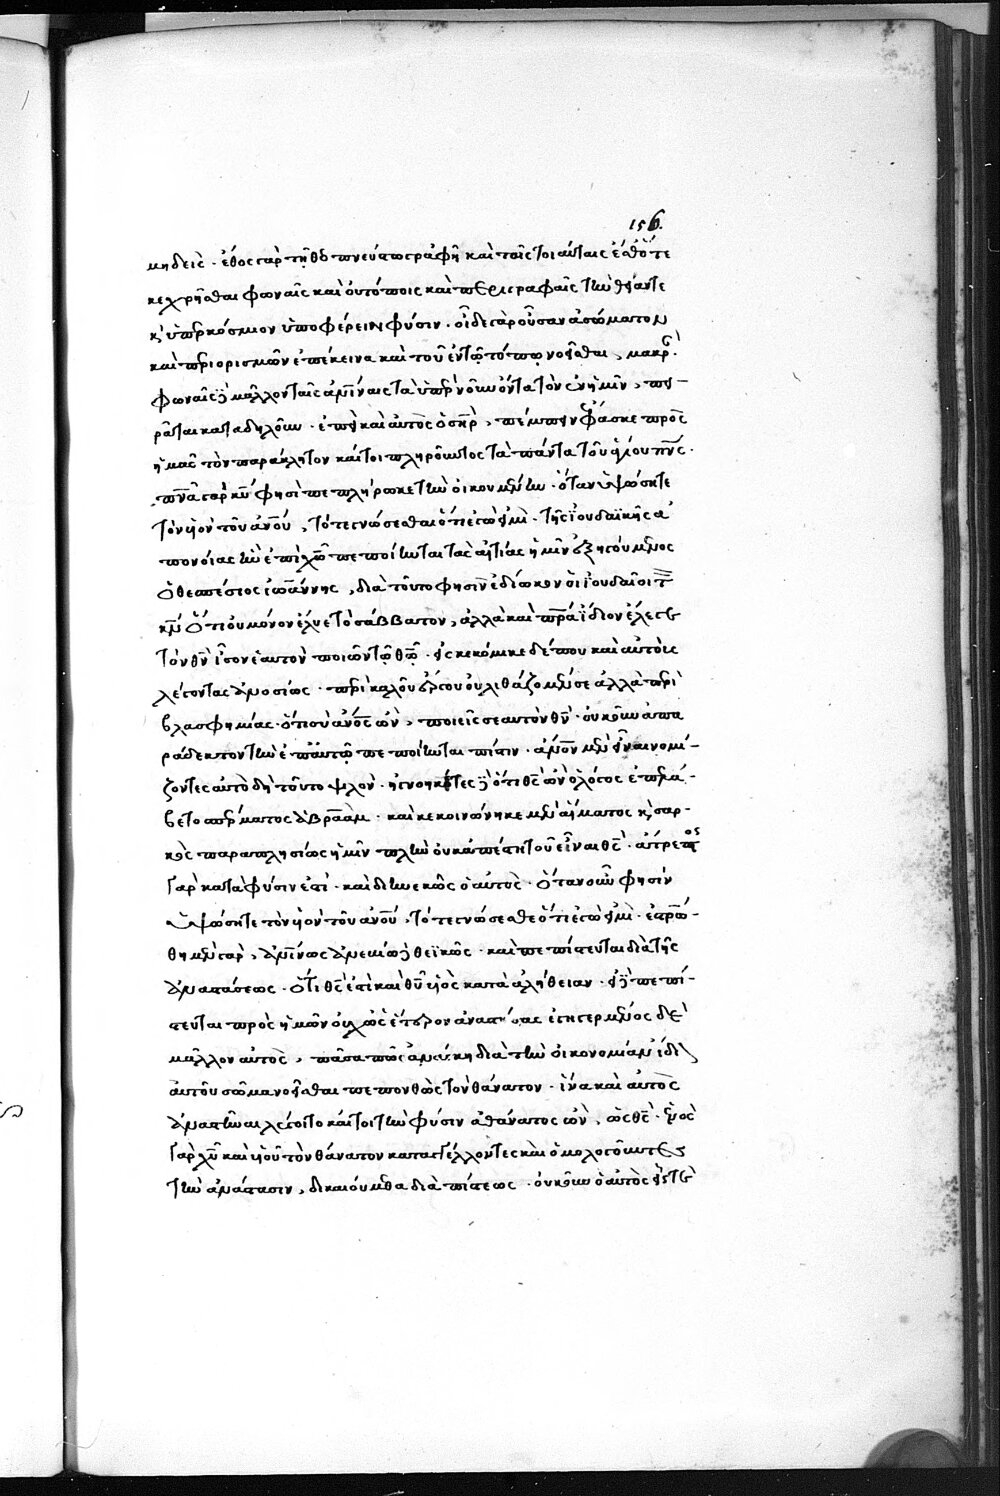 156.
μηδείς · ἔθος γὰρ τῆ θεοπνεύστω γραφῆ καὶ ταῖς τοιαύταις ἔσθ' ὅτε
κεχρῆσθαι φωναῖς καὶ οὐ τόποις καὶ περιγραφαῖς τὴν θείαν τε
κ ὑπερκόσμιον ὑποφέρειν φύσιν · οἶδε γὰρ οὖσαν ἀσώματον
καὶ περιορισμῶν ἐπέκεινα καὶ τοῦ ἐν τῶ τόπω νοεῖσθαι ,
φωναῖς δὲ μᾶλλον ταῖς τὰ ὑπὲρ νοῦν ὄντα τὸν ἐν ἡμῖν , πει-
ρᾶται καταδηλοῦν · ἐπεὶ καὶ αὐτὸς ὁ σὴρ , πέμπειν ἔφασκε πρὸς
ἡμᾶς τὸν παράκλητον καίτοι πληροῦντος τὰ πάντα τοῦ ἁγίου πνς ·
πνα γὰρ κυ φησὶ πεπλήρωκε τὴν οἰκουμένην · ὅταν ὑψώσητε
τὸν υἱὸν τοῦ ἀνου , τότε γνώσεσθαι ὅτι ἐγώ εἰμι · τῆς ἰουδαϊκῆς ἀ
πονοίας τὴν ἐπὶ χῶ πεποίηνται τὰς αἰτίας ἡμῖν ἐξηγούμενος
ὁ θεσπέσιος ἰωάννης , διὰ τοῦτο φησιν ἐδίωκον οἱ ἰουδαῖοι τ
κν ὅτι οὐ μόνον ἔλυε τὸ σάββατον , ἀλλὰ καὶ πρα ἴδιον ἔλεγε
τὸν θν ἴσον ἑαυτὸν ποιῶν τῶ θῶ · εἰσκεκόμικε δέ που καὶ αὐτοὺς
λέγοντας ἀνοσίως · περὶ καλοῦ ἔργου οὐ λιθάζομέν σε ἀλλὰ περὶ
βλασφημίας · ὅτι σὺ ἀνος ὢν , ποιεῖς σεαυτὸν θν · οὐκοῦν ἀπα
ράδεκτον τὴν ἐπ' αὐτῶ πεποίηνται πίστιν · ἀνον μὲν εἶναι νομί-
ζοντες αὐτὸ δὴ τοῦτο ψιλὸν · ἠγνοηκότες δὲ ὅτι θς ὢν ὁ λόγος ἐπελά-
βετο σπέρματος ἀβραάμ · καὶ κεκοινώνηκε μὲν αἵματος κ σαρ-
κὸς παραπλησίως ἡμῖν πλὴν οὐκ ἀπέστη τοῦ εἶναι θς · ἄτρεπτος
γὰρ κατὰ φύσιν ἐστὶ · καὶ διηνεκῶς ὁ αὐτὸς · ὅταν οὖν φησὶν
ὑψώσητε τὸν υἱὸν τοῦ ἀνου , τότε γνώσεσθε ὅτι ἐγώ εἰμι · ἐσταυρώ-
θη μὲν γὰρ , ἀνίνως ἀνεβίω δὲ θεϊκῶς · καὶ πεπίστευται διὰ τῆς
ἀναστάσεως · ὅτι θς ἐστὶ καὶ θυ υἱὸς κατὰ ἀλήθειαν · εἰ δὲ πεπί-
στευται πρὸς ἡμῶν οὐχ ὡς ἕτερον ἀναστήσας ἐγηγερμένος δὲ
μᾶλλον αὐτὸς , πᾶσα πως ἀνάγκη διὰ τὴν οἰκονομίαν ἴδιον
αὐτοῦ σῶμα νοεῖσθαι πεπονθὼς τὸν θάνατον · ἵνα καὶ αὐτὸς
ἀναστῆναι λέγοιτο καίτοι τὴν φύσιν ἀθάνατος ὢν , ὡς θς ·
γὰρ χυ καὶ υἱοῦ τὸν θάνατον καταγγέλλοντες καὶ ὁμολογοῦντες
τὴν ἀνάστασιν , δικαιούμεθα διὰ πίστεως · οὐκοῦν ὁ αὐτὸς ἦν τε